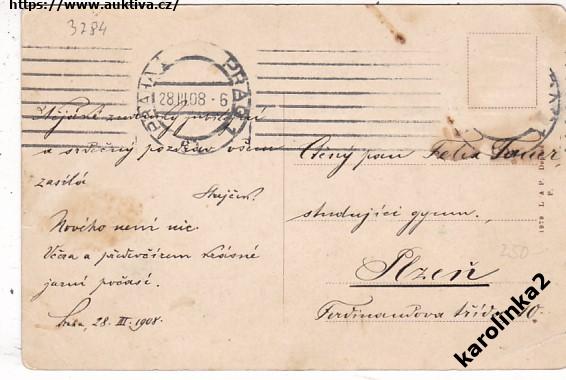 https://www.auktiva.cz/
3284
PRAHA 1 PRAG 1
28.III.08 - 6
a srdečný pozdrav všem
zasílá
Strýček.
Nového není nic.
Včera a předevčírem krásné
jarní počasí.
Praha, 28. III. 1908.
Ctěný pan Felix
studující gymn.
Plzeň
Ferdinandova třída 10.
250
karolinka2